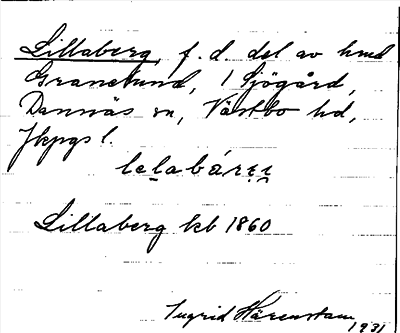 Lillaberg, f. d. del av hmd
Granelund, 1 Sjögård,
Dannäs sn, Västbo hd,
Jkpgs l.
lelabári̯i̯
Lillaberg kb 1860
Ingrid Härenstam
1931